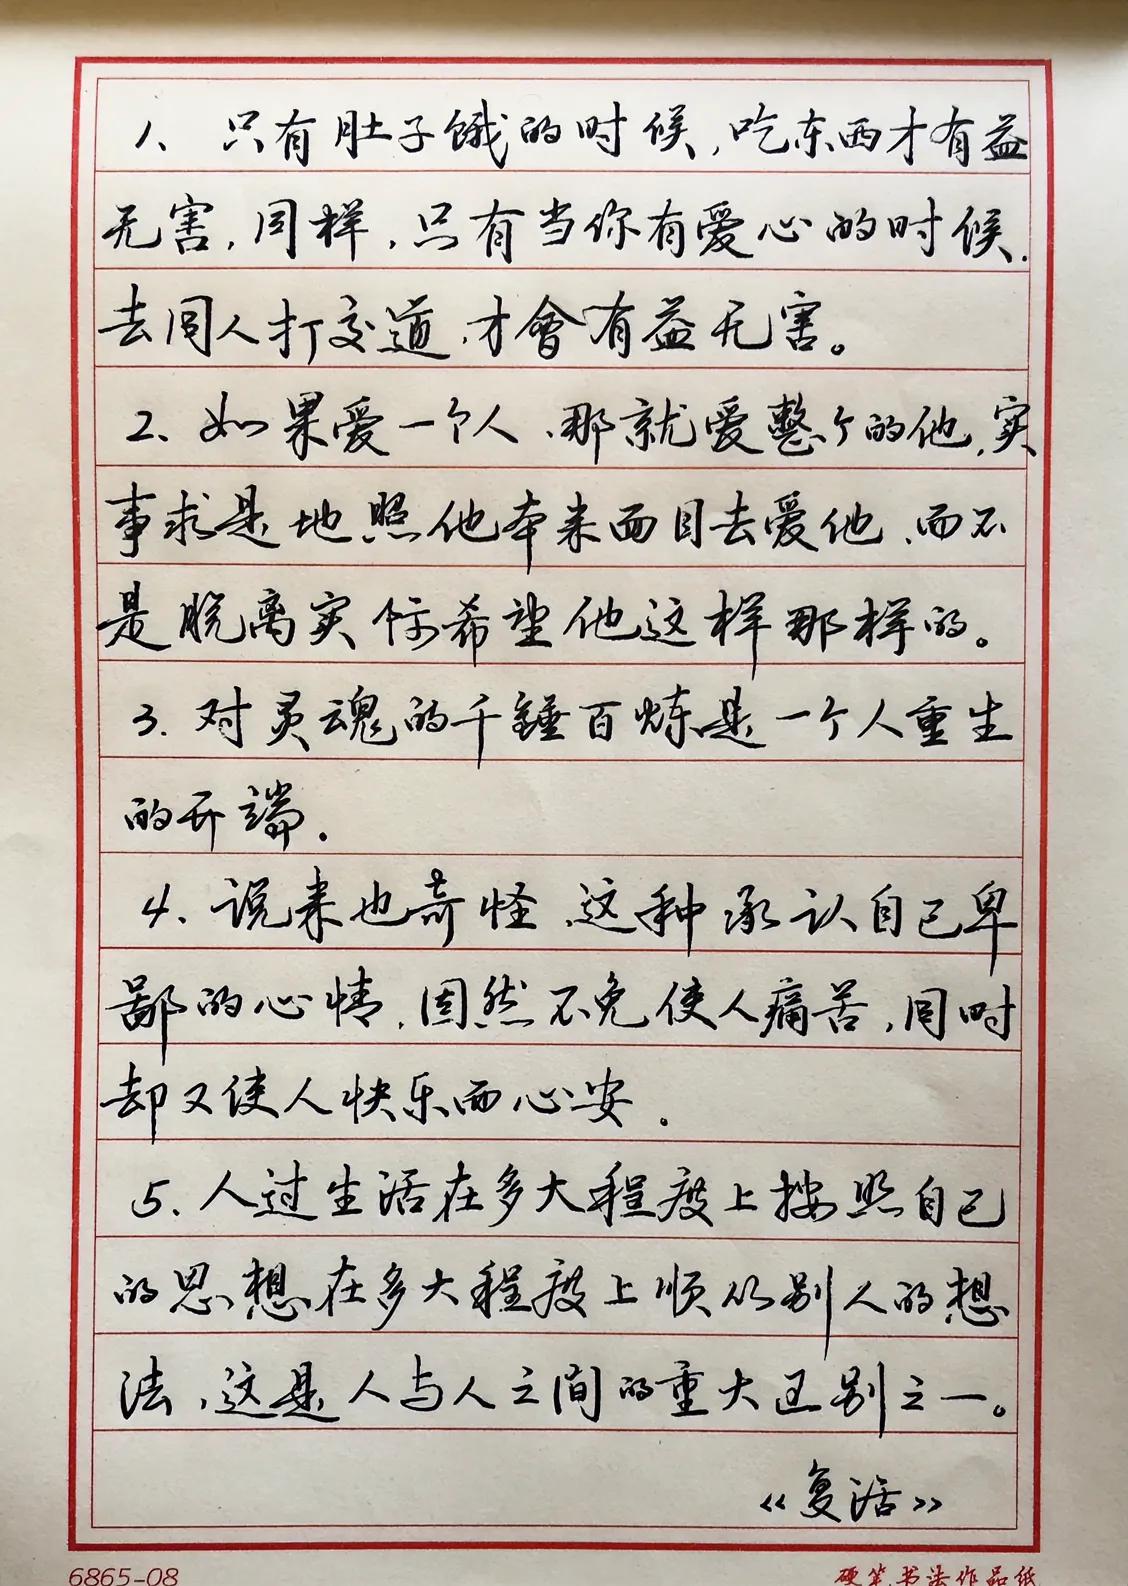 1、只有肚子饿的时候,吃东西才有益
无害,同样,只有当你有爱心的时候.
去同人打交道,才會有益无害。
2、如果爱一个人、那就爱整个的他,实
事求是地照他本来面目去爱他、而不
是脱离实际希望他这样那样的。
3.对灵魂的千锤百炼是一个人重生
的开端.
4、说来也奇怪、这种承认自己卑
鄙的心情,固然不免使人痛苦,同时
却又使人快乐而心安.
5、人过生活在多大程度上按照自己
的思想在多大程度上顺从别人的想
法,这是人与人之间的重大区别之一。
《复活》
6865-08
硬笔书法作品纸